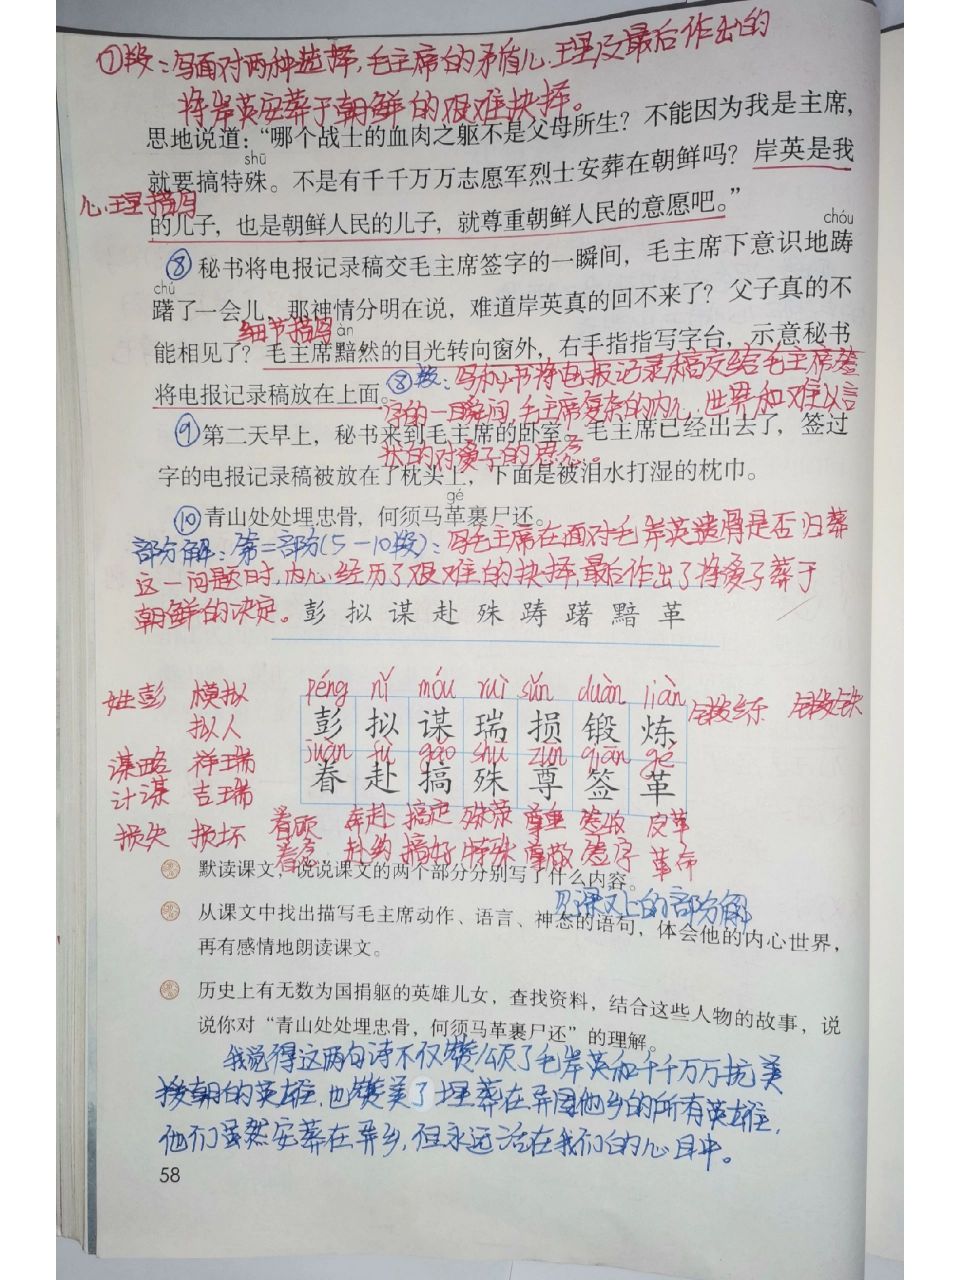 ⑦段：写面对两种选择，毛主席的矛盾心理及最后作出的
将岸英安葬于朝鲜的艰难抉择。
思地说道：“哪个战士的血肉之躯不是父母所生？不能因为我是主席，
shū
就要搞特殊。不是有千千万万志愿军烈士安葬在朝鲜吗？岸英是我
心理描写
的儿子，也是朝鲜人民的儿子，就尊重朝鲜人民的意愿吧。”
chóu
⑧秘书将电报记录稿交毛主席签字的一瞬间，毛主席下意识地踌
chú
躇了一会儿，那神情分明在说，难道岸英真的回不来了？父子真的不
细节描写 àn
能相见了？毛主席黯然的目光转向窗外，右手指指写字台，示意秘书
将电报记录稿放在上面。
⑧段：写秘书将电报记录稿交给毛主席签
字的一瞬间，毛主席复杂的内心世界和难以言
状的对爱子的思念。
⑨第二天早上，秘书来到毛主席的卧室。毛主席已经出去了，签过
字的电报记录稿被放在了枕头上，下面是被泪水打湿的枕巾。
gé
⑩青山处处埋忠骨，何须马革裹尸还。
部分解：第二部分(5－10段)：写毛主席在面对毛岸英遗骨是否归葬
这一问题时，内心经历了艰难的抉择，最后作出了将爱子葬于
朝鲜的决定。
彭 拟 谋 赴 殊 踌 躇 黯 革
péng nǐ móu ruì sǔn duàn liàn
姓彭 模拟 彭 拟 谋 瑞 损 锻 炼 锻练 锻铁
拟人
juàn fù gǎo shū zūn qiān gé
谋略 祥瑞 眷 赴 搞 殊 尊 签 革
计谋 吉瑞
损失 损坏 眷顾 奔赴 搞定 殊荣 尊重 签收 皮革
眷念 赴约 搞好 特殊 尊敬 签字 革命
默读课文，说说课文的两个部分分别写了什么内容。
见课文上的部分解
从课文中找出描写毛主席动作、语言、神态的语句，体会他的内心世界，
再有感情地朗读课文。
历史上有无数为国捐躯的英雄儿女，查找资料，结合这些人物的故事，说
说你对“青山处处埋忠骨，何须马革裹尸还”的理解。
我觉得这两句诗不仅赞颂了毛岸英和千千万万抗美
援朝的英雄，也赞美了埋葬在异国他乡的所有英雄，
他们虽然安葬在异乡，但永远活在我们的心目中。
58